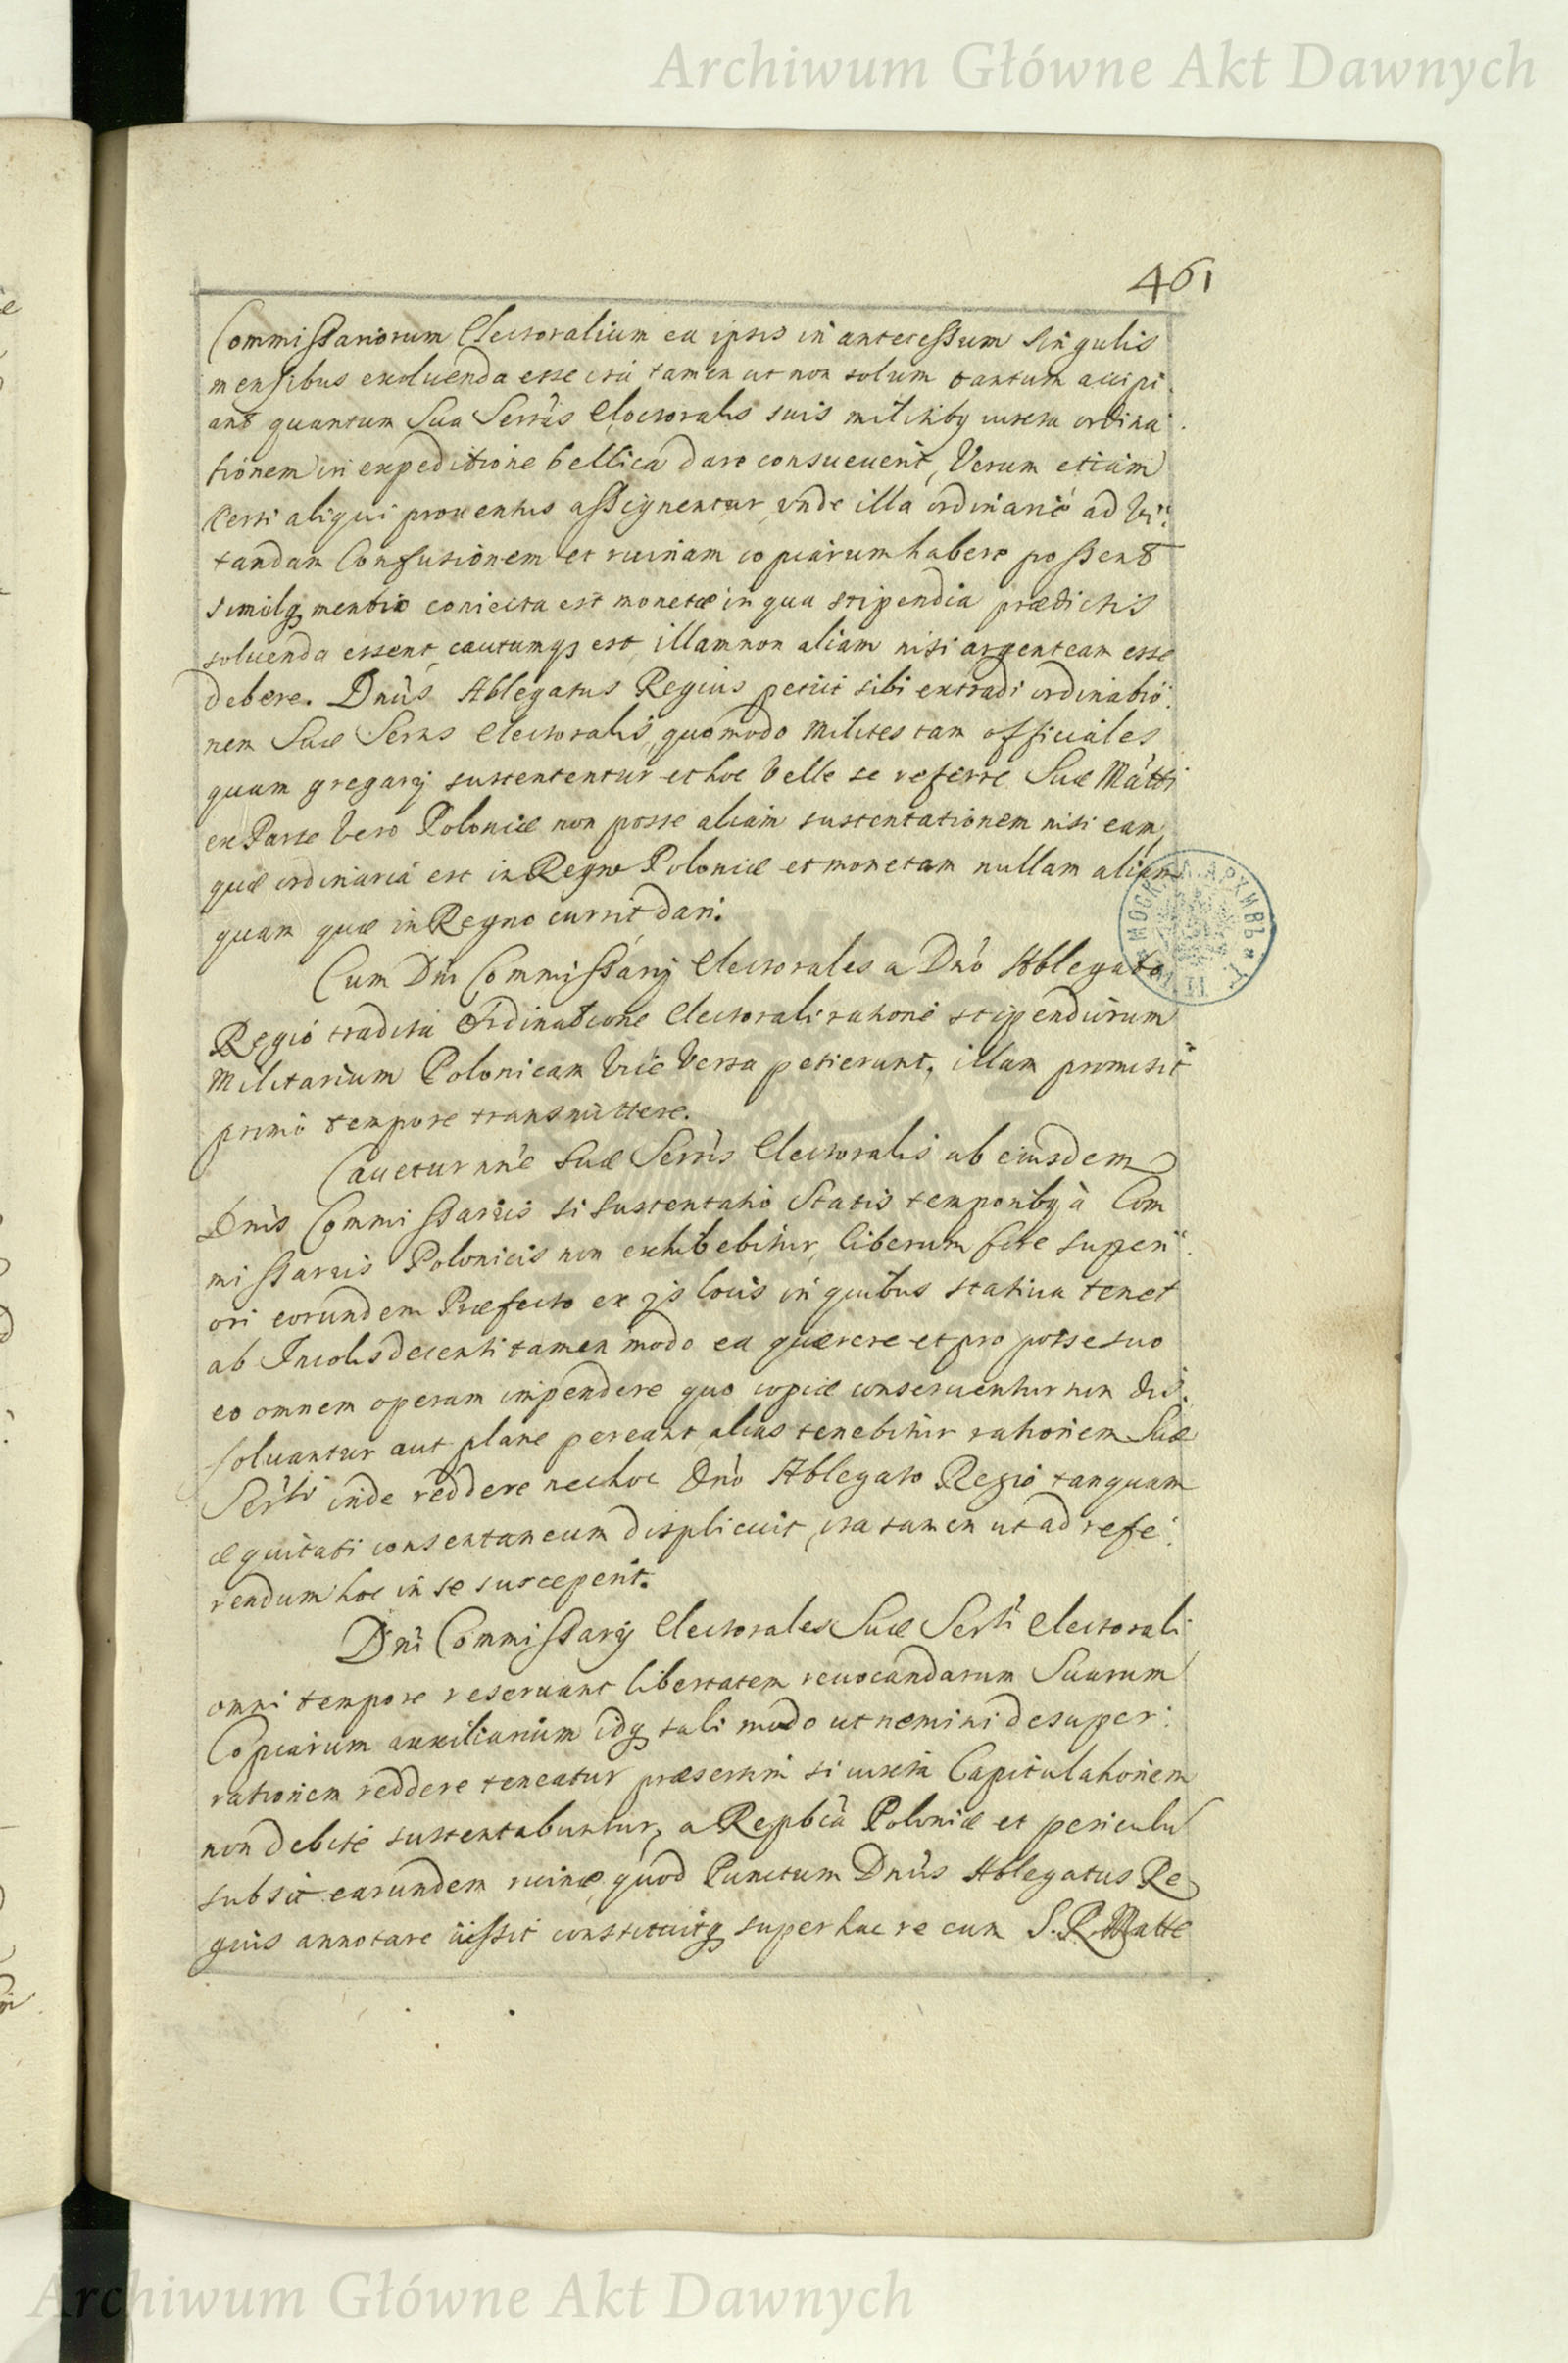 Archiwum Główne Akt Dawnych
461
Commissariorum Electoralium ea ipsis in antecessum singulis
mensibus exoluenda esse ita tamen ut non solum tantum accipi
ant quantum Sua Serris Electoralis suis militibq iuxta ordina
tionem in expeditione bellica dare consueuerit, Verum etiam
Certi aliqui prouentus assignentur, vnde illa ordinarie ad Vi
tandam Confusionem et ruinam copiarum habere possent
similq mentio coniecta est monetæ in qua stipendia prædictis
soluenda essent, cautumq est illam non aliam nisi argenteam esse
debere. Dnus Ablegatus Regius petiit sibi extradi ordinatio
nem Suæ Serris Electoralis, quomodo milites tam officiales
quam gregarij sustententur et hoc Velle se referre Suæ Matti
ex Parte Vero Poloniæ non posse aliam sustentationem nisi eam
quæ ordinaria est in Regno Poloniæ et monetam nullam aliam
quam quæ in Regno currit dari.
Cum Dni Commissarij Electorales a Dno Ablegato
Regio tradita Ordinatione Electorali ratione stipendiorum
Militarium Polonicam Vice Versa petierunt, illam promisit
primo tempore transmittere.
Cauetur nne Suæ Serris Electoralis ab eiusdem
Dnis Commissariis si sustentatio Statis temporibq à Com
missariis Polonicis non exhibebitur, liberum fore superi
ori eorundem Præfecto ex ijs locis in quibus statiua tenet
ab Incolis decenti tamen modo ea quærere et pro posse suo
eo omnem operam impendere quo copiæ conseruentur non dis
soluantur aut plane pereant, alias tenebitur rationem Suæ
Serti inde reddere nec hoc Dno Ablegato Regio tanquam
æquitati consentaneum displicuit, ita tamen ut ad refe
rendum hoc in se susceperit.
Dni Commissarij Electorales Suæ Serti Electorali
omni tempore reseruant libertatem reuocandarum Suarum
Copiarum auxiliarium idq tali modo ut nemini desuper
rationem reddere teneatur præsertim si iuxta Capitulationem
non debite sustentabuntur, a Repbca Poloniæ et periculu
subsit earundem ruinæ, quod Punctum Dnus Ablegatus Re
gius annotare iussit constituitq super hac re cum S. R. Matte
Archiwum Główne Akt Dawnych